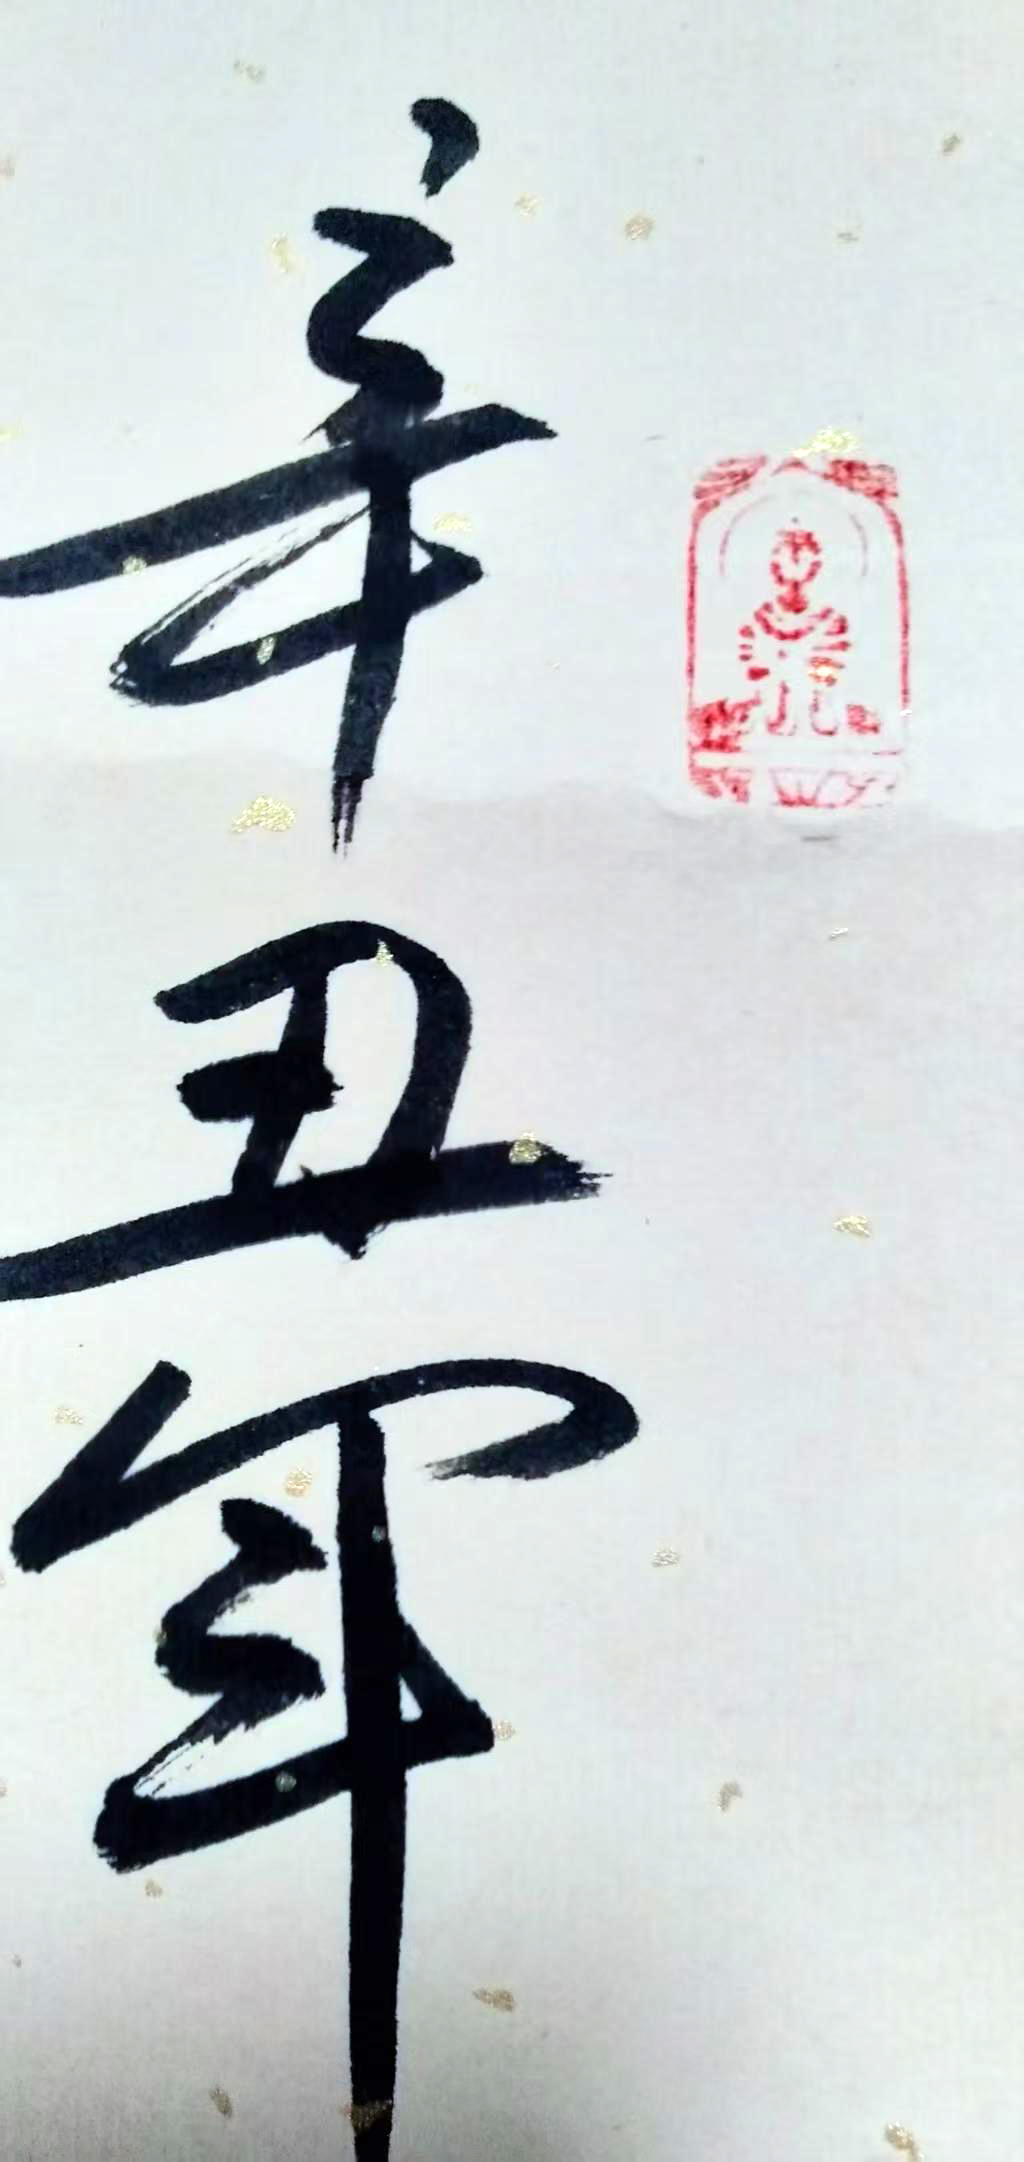 辛丑年